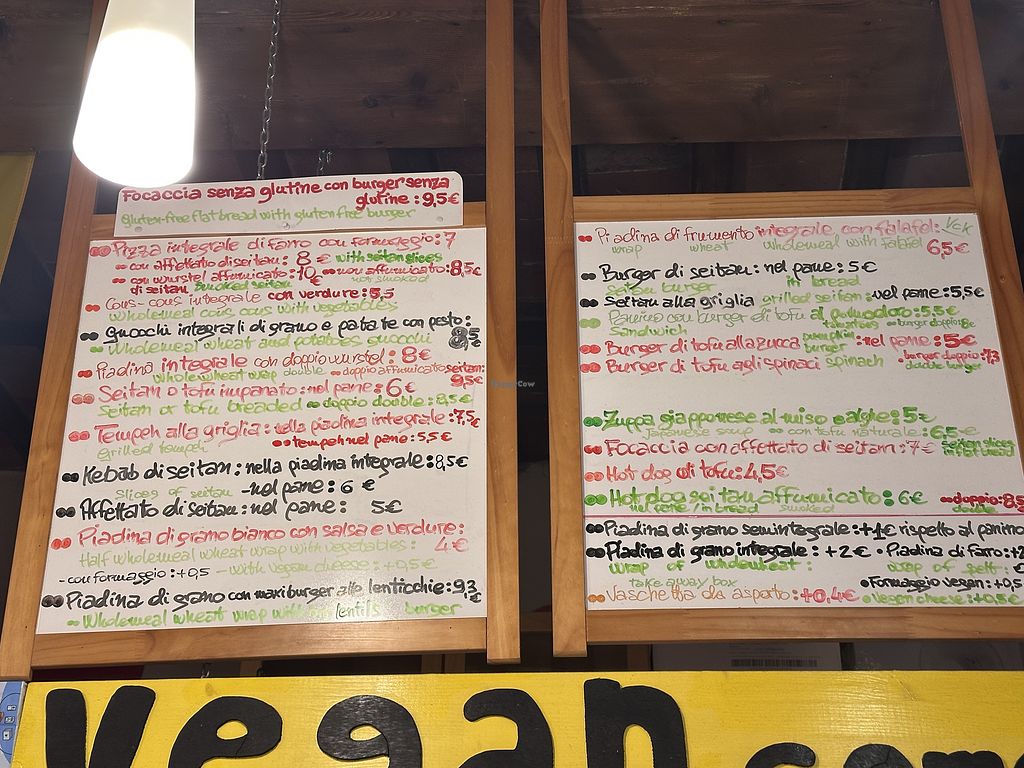 Focaccia senza glutine con burger senza
glutine : 9,5€
Gluten-free flat bread with gluten free burger
Pizza integrale di farro con formaggio : 7
con affettato di seitan : 8 € with seitan slices
con wurstel affumicato : 10 € non affumicato : 8,5€
di seitan smoked seitan not smoked
Cous-cous integrale con verdure : 5,5
Wholemeal cous cous with vegetables
Gnocchi integrali di grano e patate con pesto :
Wholemeal wheat and potatoes gnocchi 8,5 €
Piadina integrale con doppio wurstel : 8€
wholewheat wrap double doppio affumicato seitan:
9,5€
Seitan o tofu impanato : nel pane : 6€
Seitan or tofu breaded doppio double : 8,5€
Tempeh alla griglia : nella piadina integrale : 7,5€
grilled tempeh tempeh nel pane : 5,5€
Kebab di seitan : nella piadina integrale : 8,5€
slices of seitan - nel pane : 6 €
Affettato di seitan : nel pane : 5€
Piadina di grano bianco con salsa e verdure :
4€
Half wholemeal wheat wrap with vegetables :
- con formaggio : +0,5 - with vegan cheese : +0,5€
Piadina di grano con maxi burger alle lenticchie : 9,3
€
Wholemeal wheat wrap with lentils burger
Piadina di frumento integrale con falafel :
wrap wheat wholemeal with falafel 6,5€
Burger di seitan : nel pane : 5€
seitan burger in bread
Seitan alla griglia grilled seitan : nel pane : 5,5€
Panino con burger di tofu al pomodoro : 5,5€
Sandwich tomatoes burger doppio: 8€
Burger di tofu alla zucca pumpkin burger : nel pane : 5€
Burger di tofu agli spinaci spinach burger doppio : 7,3
double burger
Zuppa giapponese al miso e alghe : 5€
Japanese soup con tofu naturale : 6,5€
Focaccia con affettato di seitan : 7€ seitan slices
in flat bread
Hot dog di tofu : 4,5€
Hot dog seitan affumicato : 6€ doppio: 8,5
nel pane / in bread smoked double
Piadina di grano semintegrale : +1€ rispetto al panino
Piadina di grano integrale : +2€ • Piadina di Farro : +2
wrap of wholewheat : wrap of spelt : €
take away box • Formaggio vegan : +0,5
Vaschetta da asporto : +0,4€ • vegan cheese : +0,5€
vegan